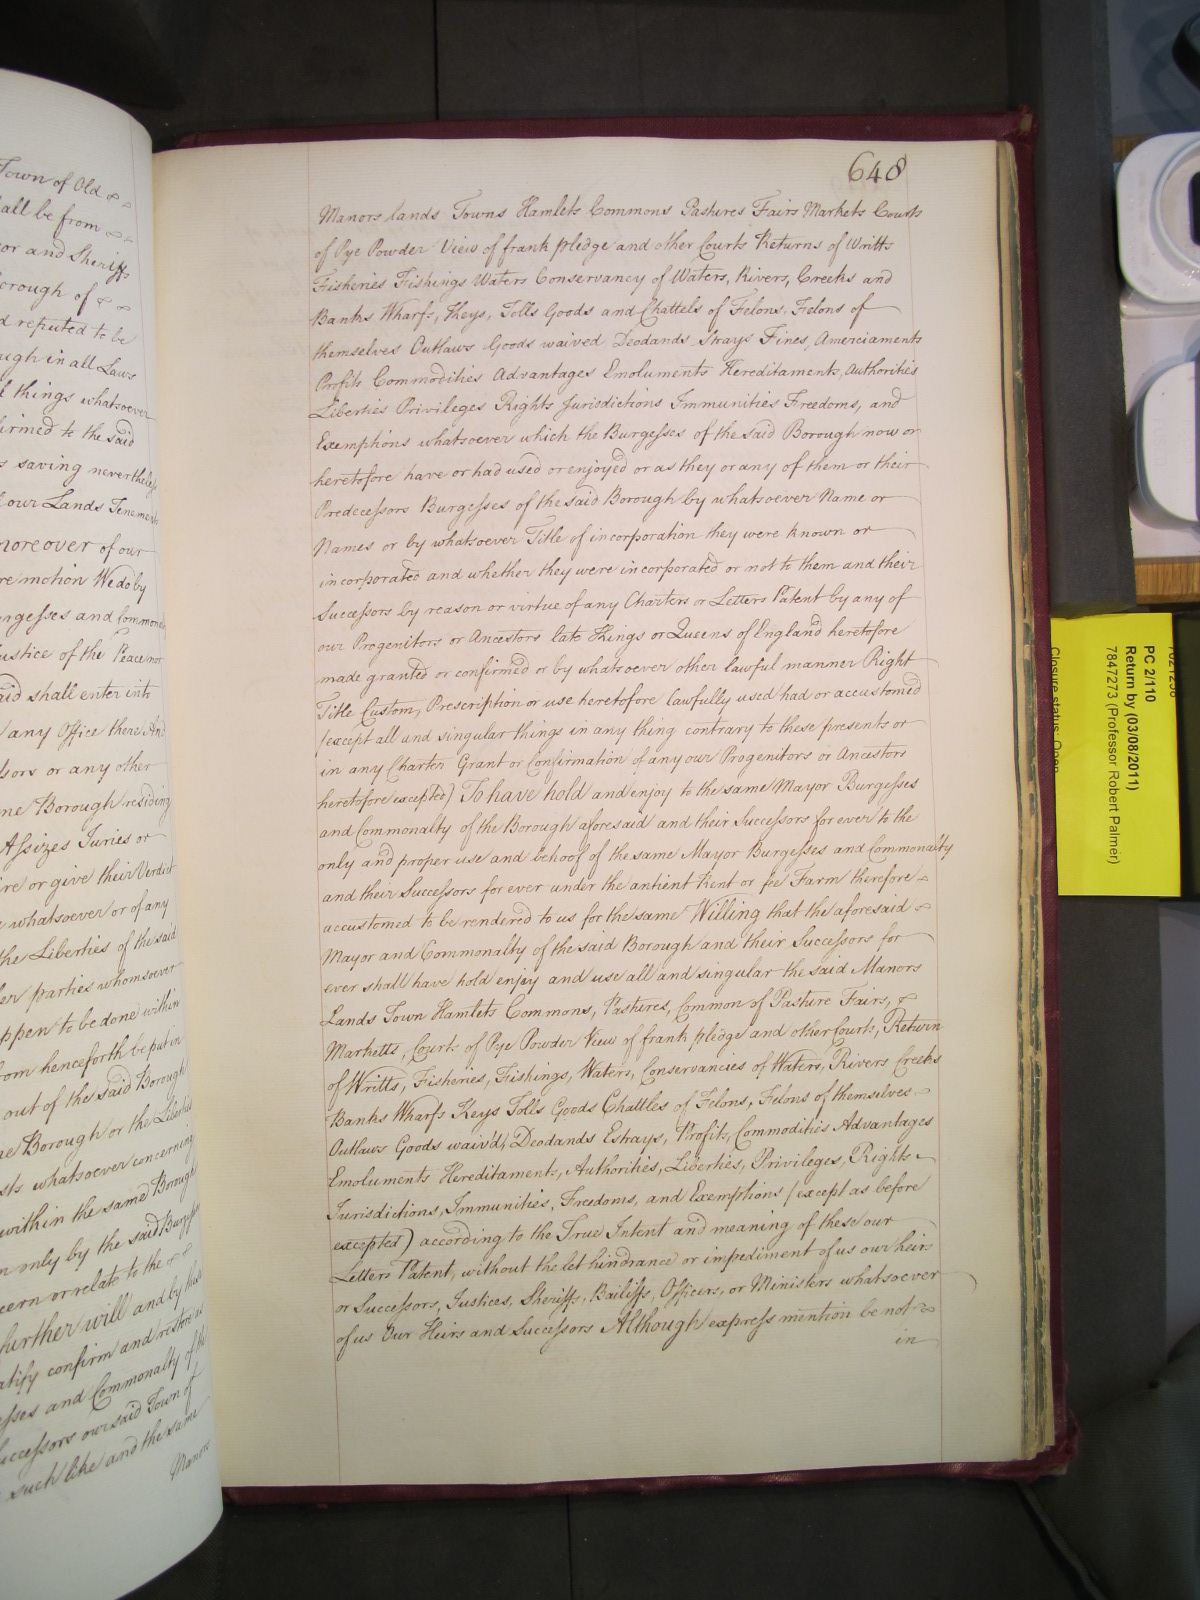 Town of Old
all be from
or and Sheriffs
orough of &
d reputed to be
ugh in all Laws
l things whatsoever
irmed to the said
s saving nevertheless
t our Lands Tenements
moreover of our
re motion We do by
urgesses and Common
ustice of the Peace nor
aid shall enter into
any Office there And
ssors or any other
me Borough residing
Assizes Juries or
re or give their Verdict
whatsoever or of any
the Liberties of the said
er parties whomsoever
ppen to be done within
om henceforth be put in
out of the said Borough
me Borough or the Liberties
sts whatsoever concerning
within the same Borough
n only by the said Burgesses
cern or relate to the
further will and by these
atify confirm and restore
esses and Commonalty of the
uccessors our said Town of
such like and the same
Manors
648
Manors lands Towns Hamlets Commons Pastures Fairs Markets Courts
of Pye Powder View of frank pledge and other Courts Returns of Writts
Fisheries Fishings Waters Conservancy of Waters, Rivers, Creeks and
Banks Wharfs, Keys, Tolls Goods and Chattels of Felons, Felons of
themselves Outlaws Goods waived Deodands Strays Fines, Amerciaments
Profits Commodities Advantages Emoluments Hereditaments, Authorities
Liberties Privileges Rights Jurisdictions Immunities Freedoms, and
Exemptions whatsoever which the Burgesses of the said Borough now or
heretofore have or had used or enjoyed or as they or any of them or their
Predecessors Burgesses of the said Borough by whatsoever Name or
Names or by whatsoever Title of incorporation they were known or
incorporated and whether they were incorporated or not to them and their
Successors by reason or virtue of any Charters or Letters Patent by any of
our Progenitors or Ancestors late Kings or Queens of England heretofore
made granted or confirmed or by whatsoever other lawful manner Right
Title Custom, Prescription or use heretofore lawfully used had or accustomed
(except all and singular things in any thing contrary to these presents or
in any Charter Grant or Confirmation of any our Progenitors or Ancestors
heretofore excepted) To have hold and enjoy to the same Mayor Burgesses
and Commonalty of the Borough aforesaid and their Successors for ever to the
only and proper use and behoof of the same Mayor Burgesses and Commonalty
and their Successors for ever under the antient Rent or fee Farm therefore
accustomed to be rendered to us for the same Willing that the aforesaid
Mayor and Commonalty of the said Borough and their Successors for
ever shall have hold enjoy and use all and singular the said Manors
Lands Town Hamlets Commons, Pastures, Common of Pasture Fairs, &
Marketts, Courts of Pye Powder View of frank pledge and other Courts, Return
of Writts, Fisheries, Fishings, Waters, Conservancies of Waters, Rivers Creeks
Banks Wharfs Keys Tolls Goods Chattles of Felons, Felons of themselves
Outlaws Goods waiv'd, Deodands Estrays, Profits, Commodities Advantages
Emoluments Hereditaments, Authorities, Liberties, Privileges, Rights
Jurisdictions, Immunities, Freedoms, and Exemptions (except as before
excepted) according to the True Intent and meaning of these our
Letters Patent, without the let hindrance or impediment of us our heirs
or Successors, Justices, Sheriffs, Bailiffs, Officers, or Ministers whatsoever
of us Our Heirs and Successors Although express mention be not
in
PC 2/110
Return by (03/08/2011)
7847273 (Professor Robert Palmer)
Closure status: Open